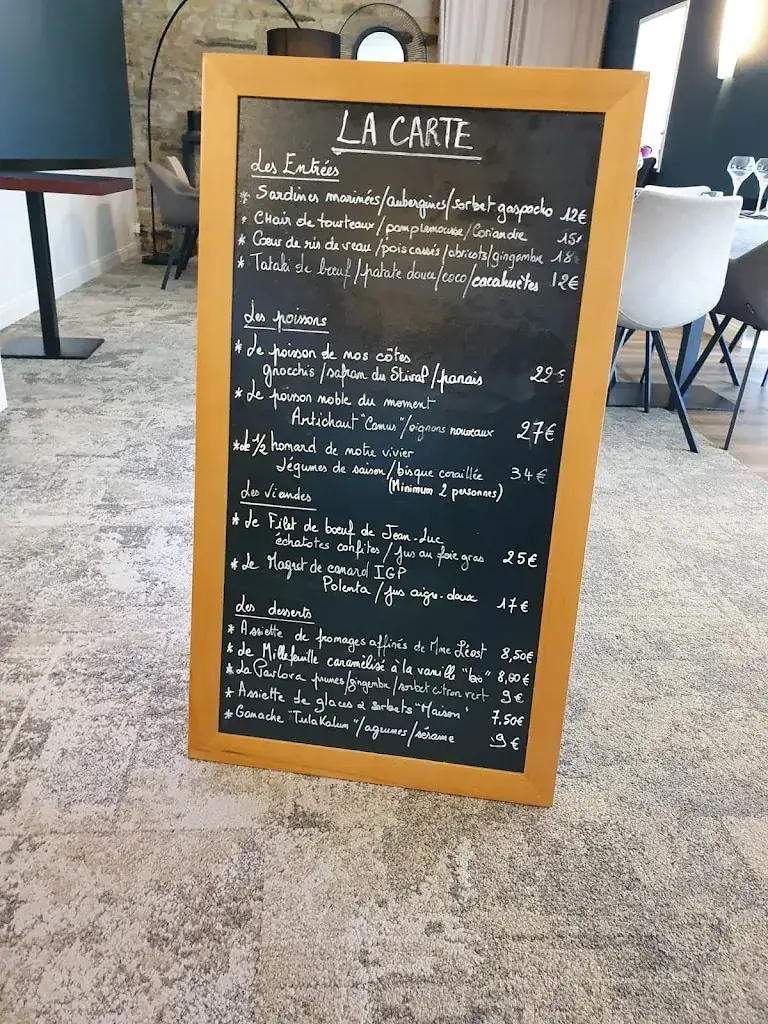 LA CARTE
Les Entrées
* Sardines marinées/aubergines/sorbet gaspacho 12€
* Chair de tourteaux/pamplemousse/Coriandre 15€
* Cœur de ris de veau/pois cassés/abricots/gingembre 18€
* Tataki de bœuf/patate douce/coco/cacahuètes 12€
Les poissons
* Le poisson de nos côtes
gnocchis/safran du Stival/panais 22€
* Le poisson noble du moment
Artichaut "Camus"/oignons nouveaux 27€
* Le 1/2 homard de notre vivier
Légumes de saison/bisque coraillée 34€
(Minimum 2 personnes)
Les viandes
* Le Filet de bœuf de Jean-Luc
échalotes confites/jus au foie gras 25€
* Le Magret de canard IGP
Polenta/jus aigre-doux 17€
Les desserts
* Assiette de fromages affinés de Mme Léost 8,50€
* Le Millefeuille caramélisé à la vanille "bio" 8,00€
* La Pavlova prunes/gingembre/sorbet citron vert 9€
* Assiette de glaces & sorbets "Maison" 7.50€
* Ganache "Tulakalum"/agrumes/sésame 9€